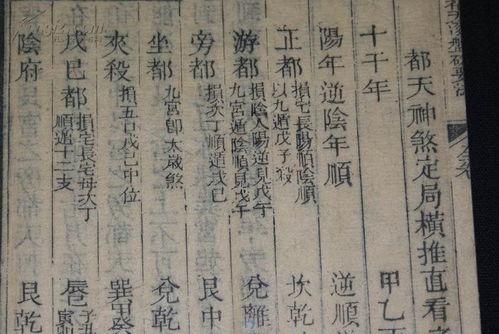 都天神煞定局橫推直看
十干年 甲乙
陽年逆陰年順 逆順
正都 損宅長陽順陰順
以九遁戊子殺 坎乾
游都 損陰人陽逆見戊午
九宮遁陰順見戊午 兌離
旁都 損次丁順遁戊巳 艮中
坐都 九宮卽太歲煞 兌乾
夾殺 損五口戊巳中位 巽
戊巳都 損宅長宅母次丁
順遁十二支
陰府 艮乾